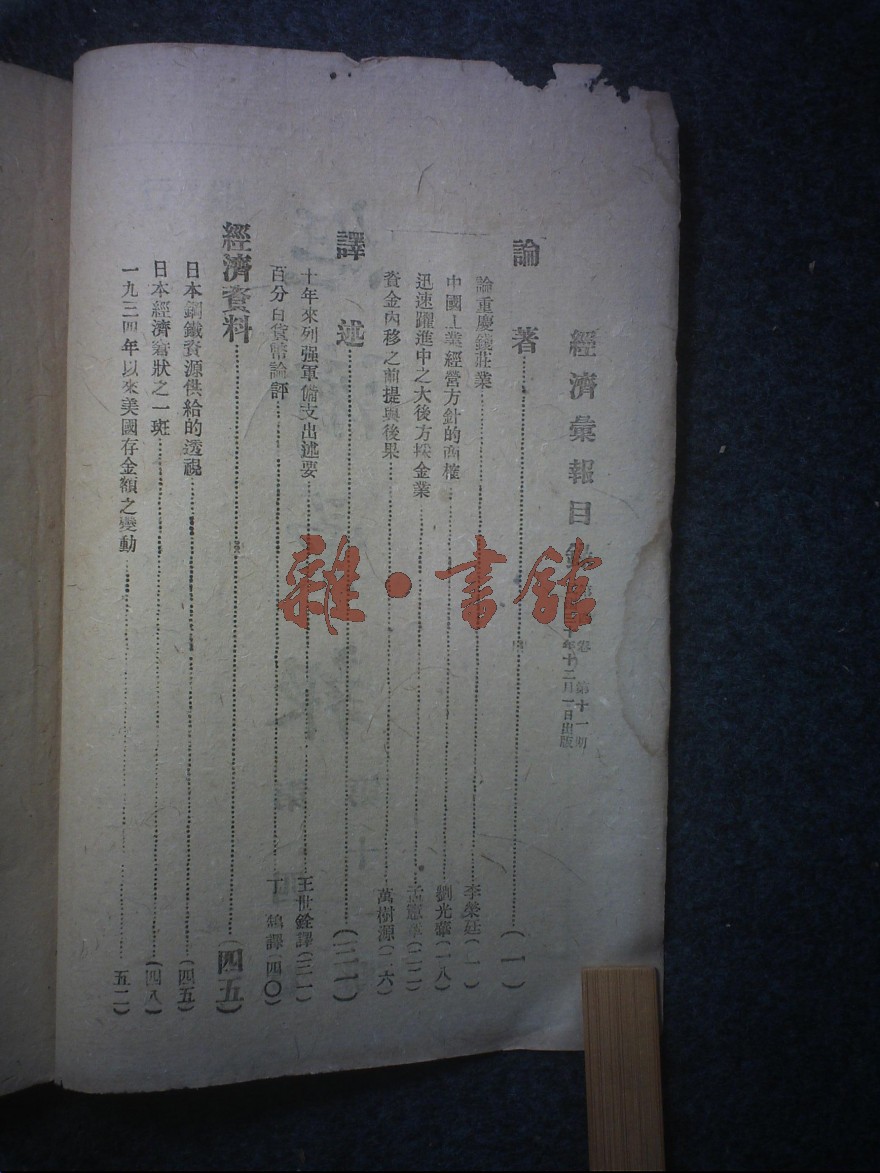 經濟彙報目錄
卷 第十一期
十年十二月一日出版
論著(一)
論重慶錢莊業 李榮廷(一)
中國工業經營方針的商榷 劉光華(一八)
迅速躍進中之大後方採金業 孟憲章(二二)
資金內移之前提與後果 萬樹源(二六)
譯述(三一)
十年來列强軍備支出述要 王世銓譯(三一)
百分百貨幣論評 丁鵠譯(四〇)
經濟資料(四五)
日本鋼鐵資源供給的透視(四五)
日本經濟窘狀之一斑(四八)
一九三四年以來美國存金額之變動 五二)
雜·書館